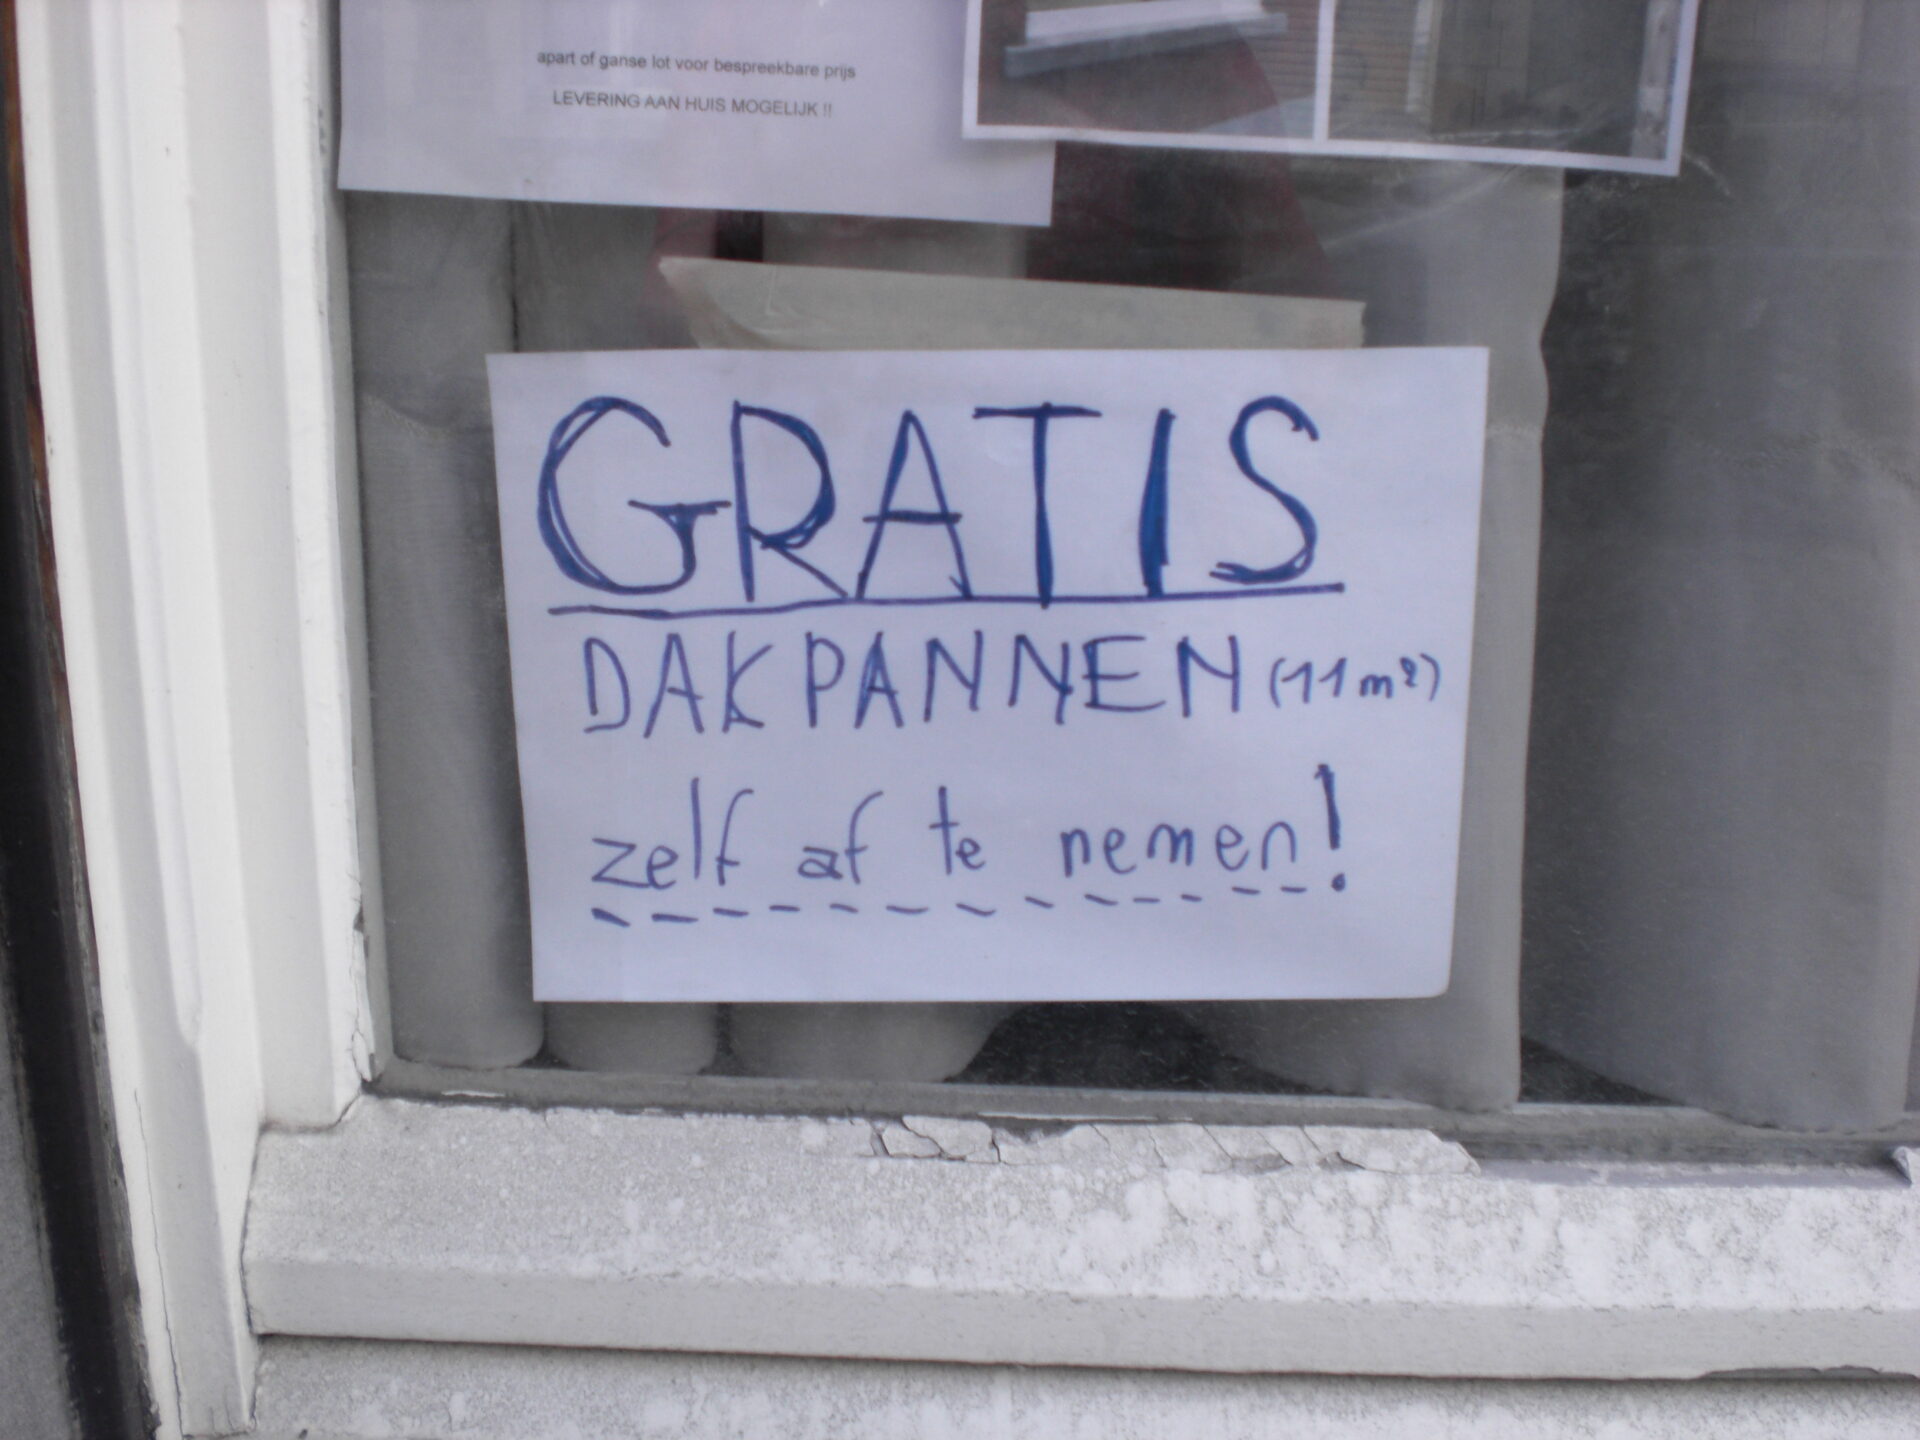 apart of ganse lot voor bespreekbare prijs
LEVERING AAN HUIS MOGELIJK !!
GRATIS
DAKPANNEN (11m²)
zelf af te nemen!